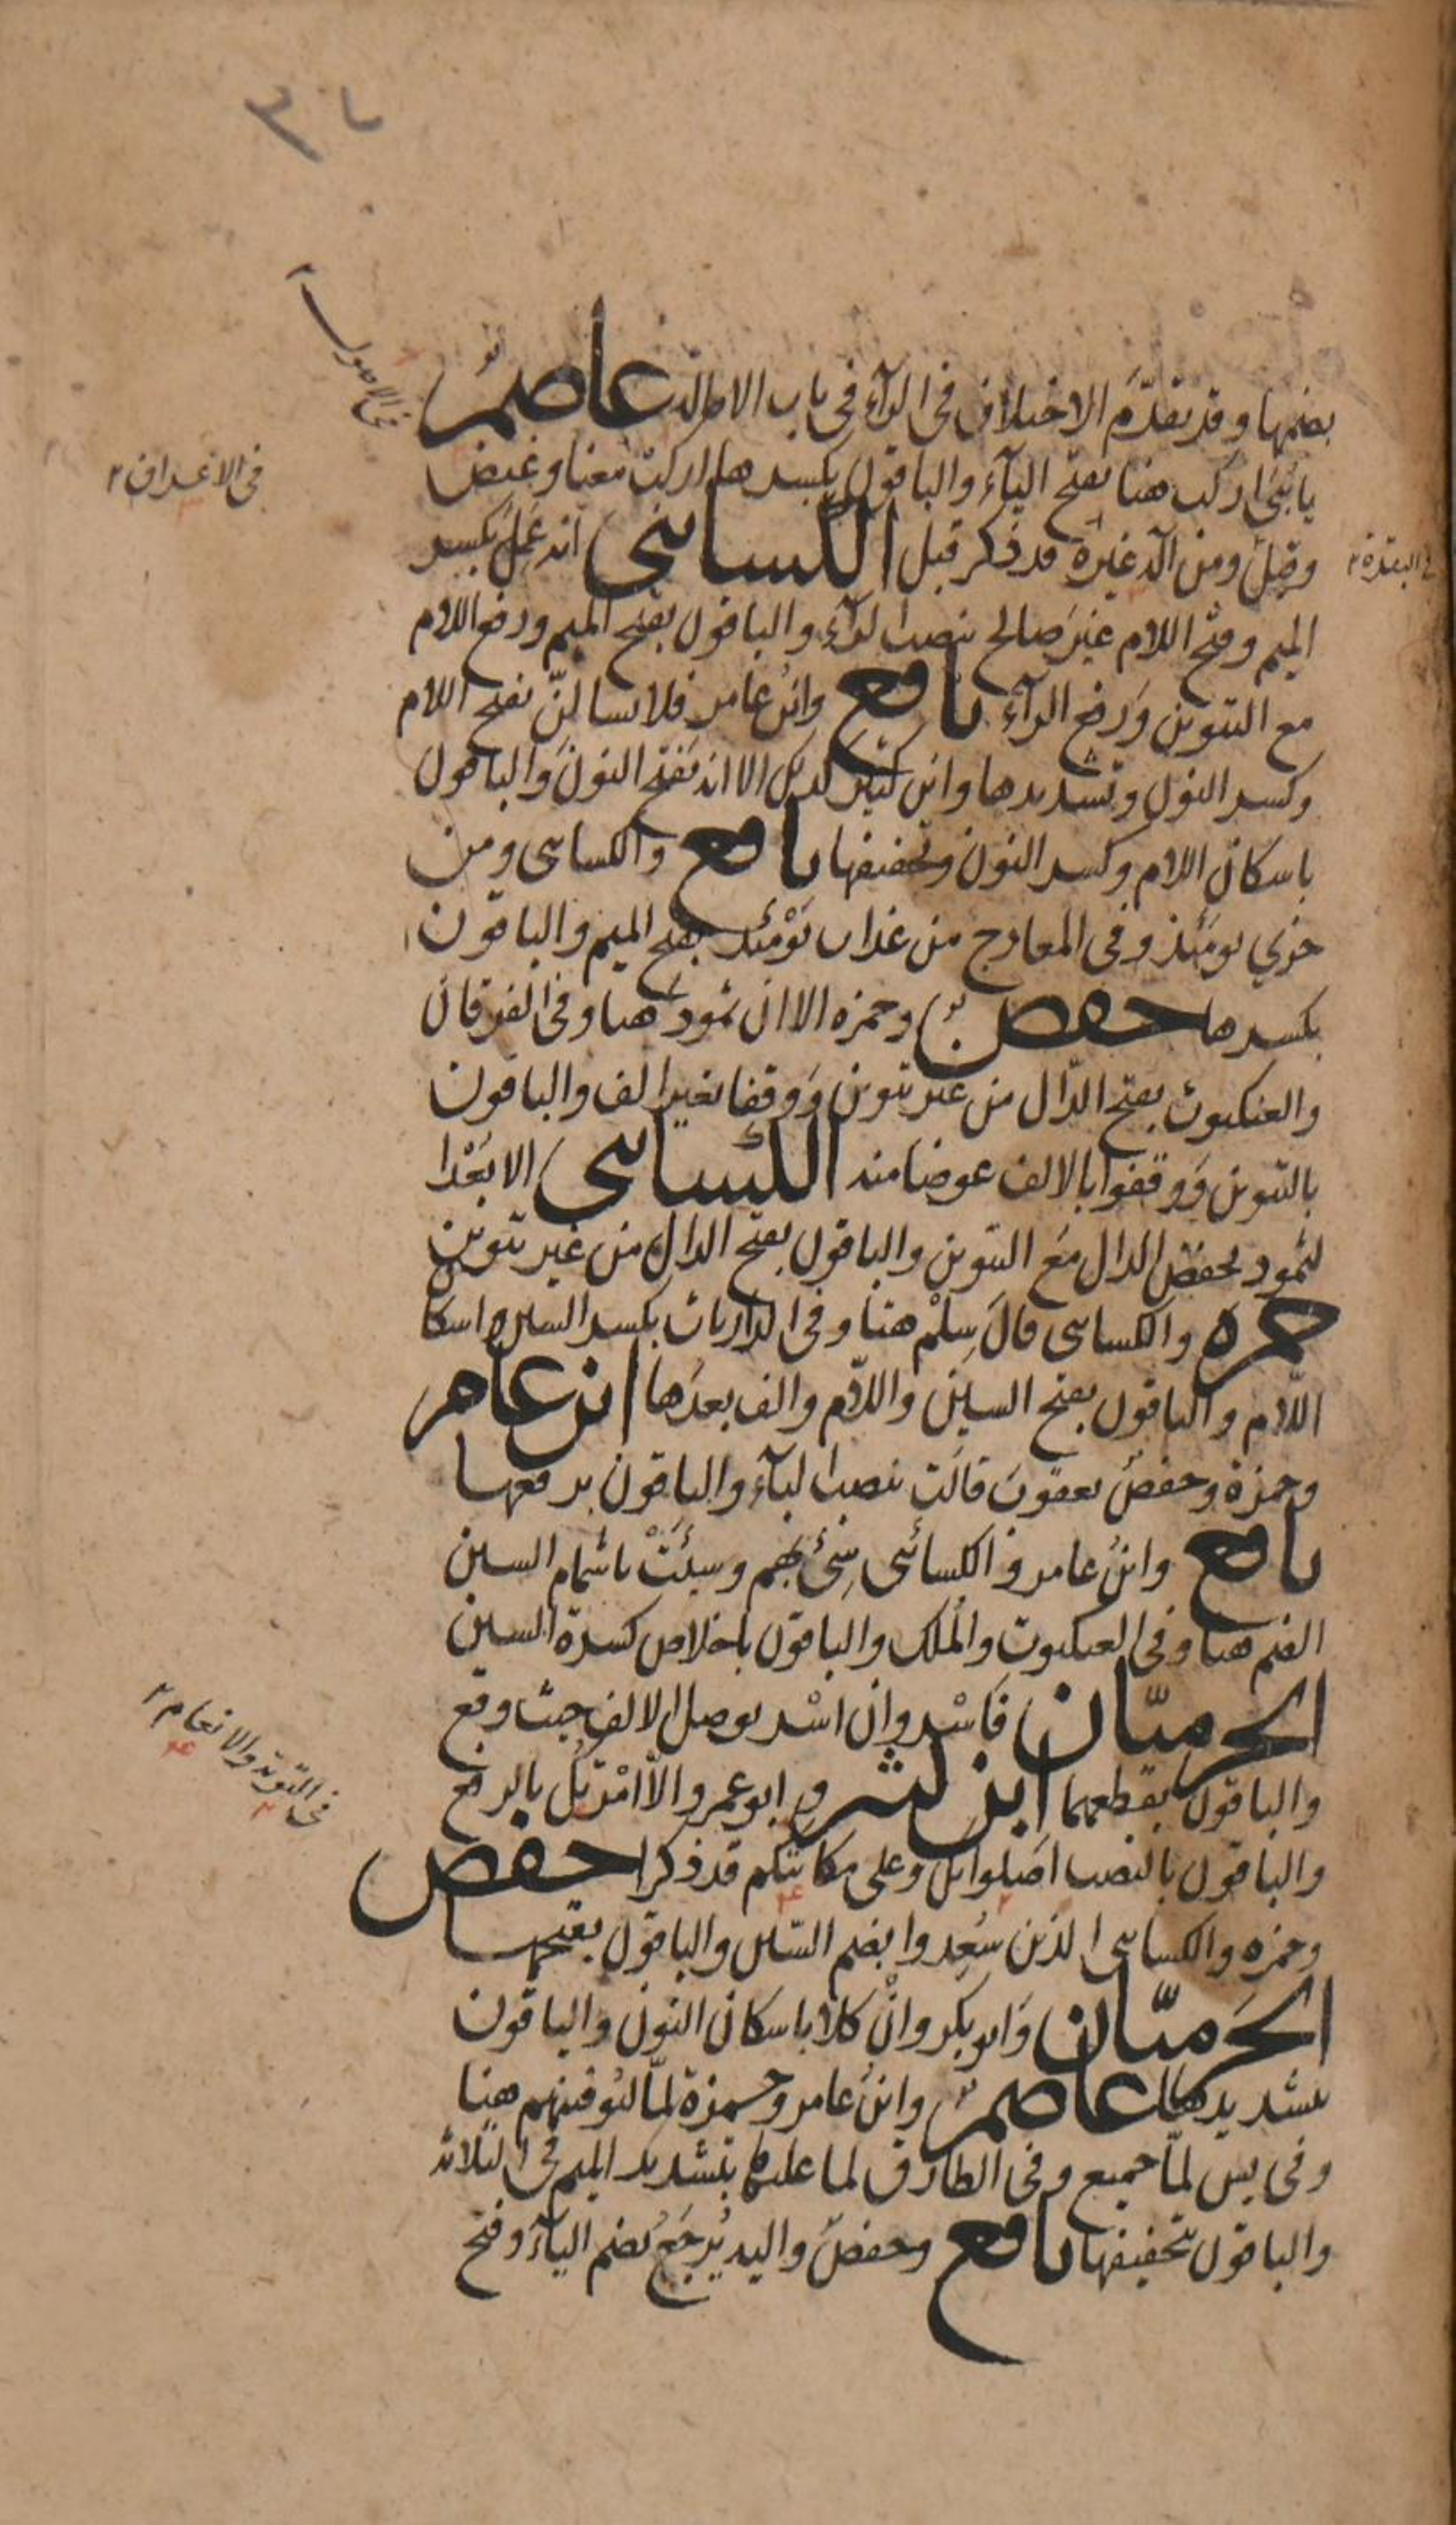 بضمها وقد تقدّم الاختلاف فى الرآء فى باب الامالة عاصم
يا بنىَّ اركب هنا بفتح اليآء والباقون بكسرها اركب معنا وغيض
وقيل ومن اله غيره قد ذكر قبل الكسائى انه عَمِلَ بكسر
الميم وفتح اللام غيرَ صالح بنصب الرآء والباقون بفتح الميم ورفع اللام
مع التنوين ورفع الرآء نافع وابن عامر فلا تسالنّ بفتح اللام
وكسر النون وتشديدها وابن كثير كذلك الا انه يفتح النون والباقون
باسكان اللام وكسر النون وتخفيفها نافع والكسائى ومن
خزي يومَئذ وفى المعارج من عذاب يَوْمَئذ بفتح الميم والباقون
بكسرها حفص وحمزه الا ان ثمودَ هنا وفى الفرقان
والعنكبوت بفتح الدّال من غير تنوين ووقفا بغير الف والباقون
بالتنوين ووقفوا بالالف عوضا منه الكسائى الا بُعْدا
لثمود بخفض الدال مع التنوين والباقون بفتح الدال من غير تنوين
حمزه والكسائى قال سِلْم هنا وفى الذاريات بكسر السين واسكا
اللّام والباقون بفتح السين واللّام والف بعدها ابن عامر
وحمزة وحفص يعقوبَ قالت بنصب البآء والباقون برفعها
نافع وابن عامر والكسائى سِئ بهم وسيئَتْ باشمام السين
الضم هنا وفى العنكبوت والمُلك والباقون باخلاص كسرة السين
الحرميّان فَاسْر وان اسْر بوصل الالف حيث وقع
والباقون بقطعهما ابن كثير وابو عمرو الّا امْرَتُك بالرفع
والباقون بالنصب اصَلوتك وعلى مكانتكم قد ذكرا حفص
وحمزه والكسائى الذين سُعِدوا بضم السّين والباقون بفتحها
الحَرميّان وابو بكر وانْ كلّا باسكان النون والباقون
بتشديدها عاصم وابن عامر وحمزة لمّا ليُوفينهم هنا
وفى يس لمّا جميع وفى الطارق لما عليها بتشديد الميم فى الثلاثة
والباقون بتخفيفها نافع وحفص واليه يُرجَعُ بضم اليآء وفتح
فى الاصول
فى الاعراف ٢
فى البقرة ٢
فى التوبة والانعام ٢